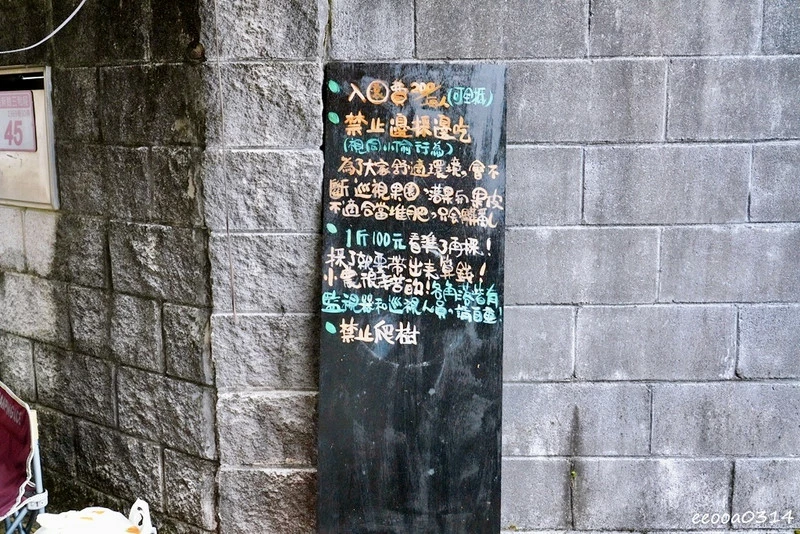 45
入園費200/人(可全抵)
禁止邊採邊吃
(視同小偷行為)
為了大家舒適環境。會不
斷巡視果園、落果分果皮
不適合當堆肥,只會髒亂
1斤100元看準了再採!
採了就要帶出來算錢!
小農很辛苦的!各角落皆有
監視器和巡視人員,請自重!
禁止爬樹
ecooa0314